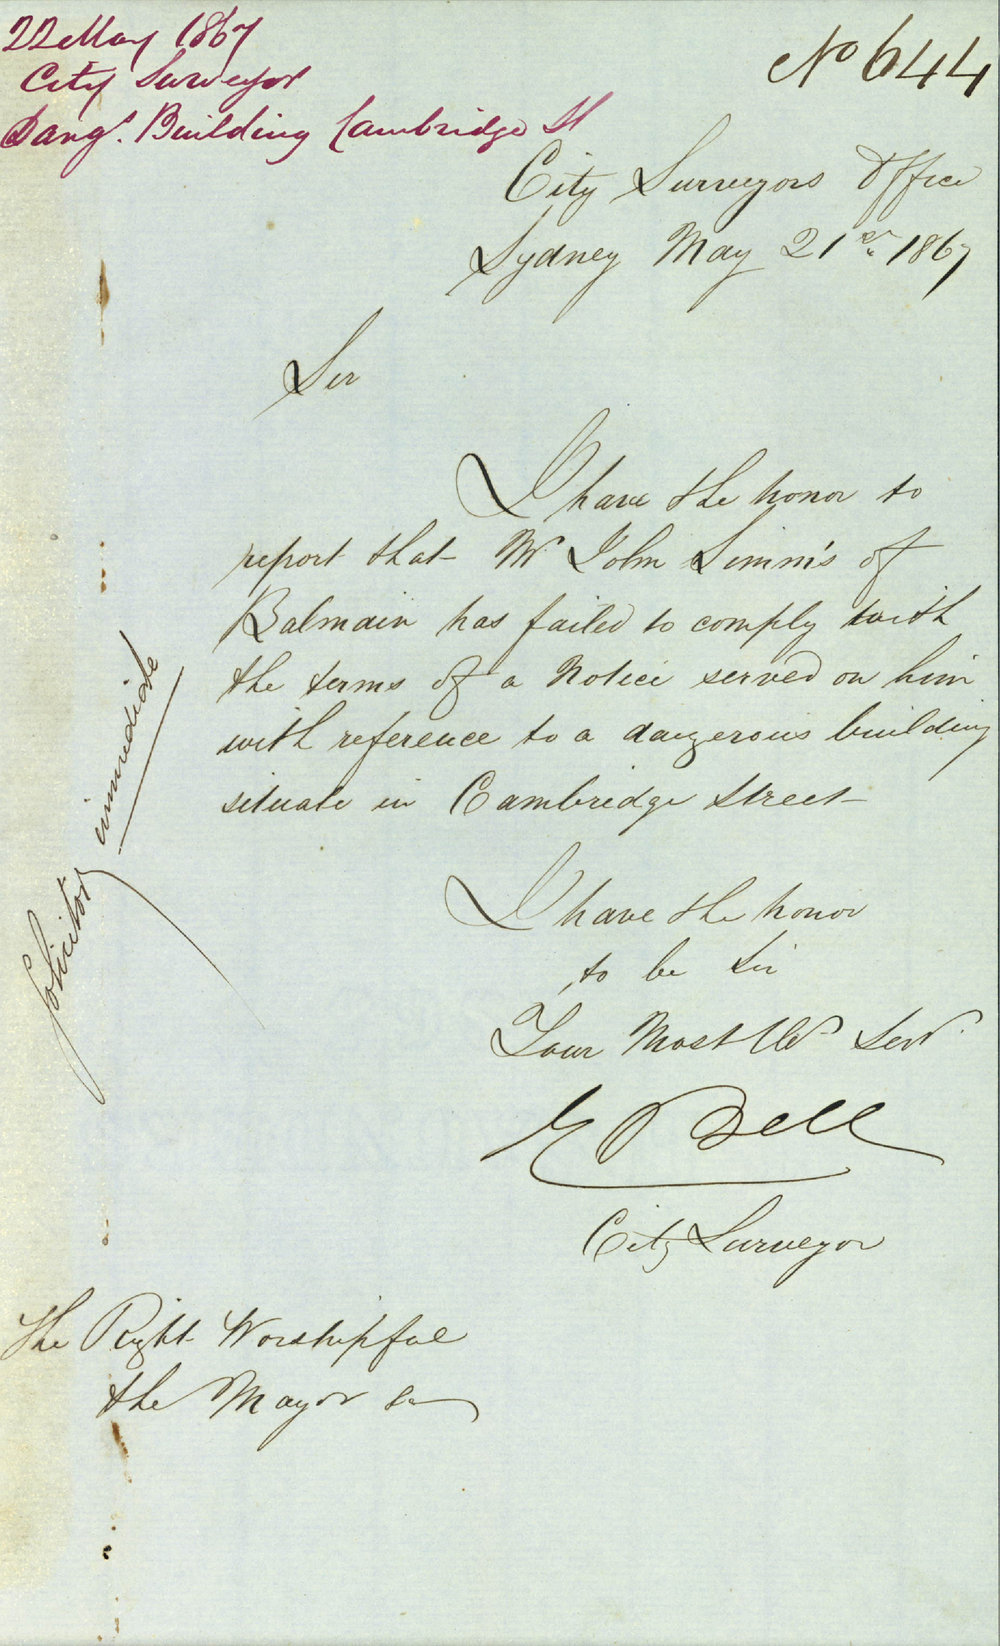 22 May 1867
City Surveyor
Dangs. Building Cambridge St
No 644
City Surveyors Office
Sydney May 21st 1867
Sir
I have the honor to
report that Mr John Simm's of
Balmain has failed to comply with
the terms of a Notice served on him
with reference to a dangerous building
situate in Cambridge Street
I have the honor
to be Sir
Your Most Obt Servt
E Bell
City Surveyor
The Right Worshipful
the Mayor &c
Solicitor immediate